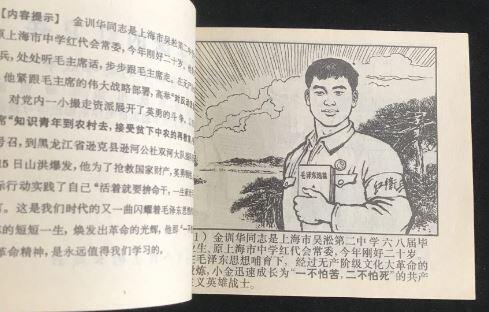 【内容提示】 金训华同志是上海市吴淞第二中
原上海市中学红代会常委,今年刚好二十岁。
兵,处处听毛主席话,步步跟毛主席走,在无产
他紧跟毛主席的伟大战略部署,高举"对反动派造
对党内一小撮走资派展开了英勇的斗争。
席"知识青年到农村去,接受贫下中农的再教育
号召,到黑龙江省逊克县逊河公社双河大队
15日山洪爆发,他为了抢救国家财产,英勇
际行动实践了自己"活着就要拚命干,一生
言。这是我们时代的又一曲闪耀着毛泽东思想
的短短一生,焕发出革命的光辉,他那"一
革命精神,是永远值得我们学习的。
毛泽东选集
红卫兵
(1) 金训华同志是上海市吴淞第二中学六八届毕
生、原上海市中学红代会常委,今年刚好二十岁。
毛泽东思想哺育下,经过无产阶级文化大革命的
锻炼,小金迅速成长为"一不怕苦,二不怕死"的共产
主义英雄战士。